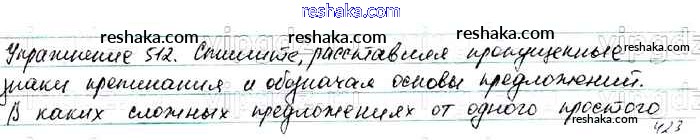 reshaka.com
reshaka.com reshaka.com
Упражнение 512. Спишите, расставляя пропущенные
знаки препинания и обозначая основы предложений.
В каких сложных предложениях от одного простого
reshaka.com reshaka.com
423